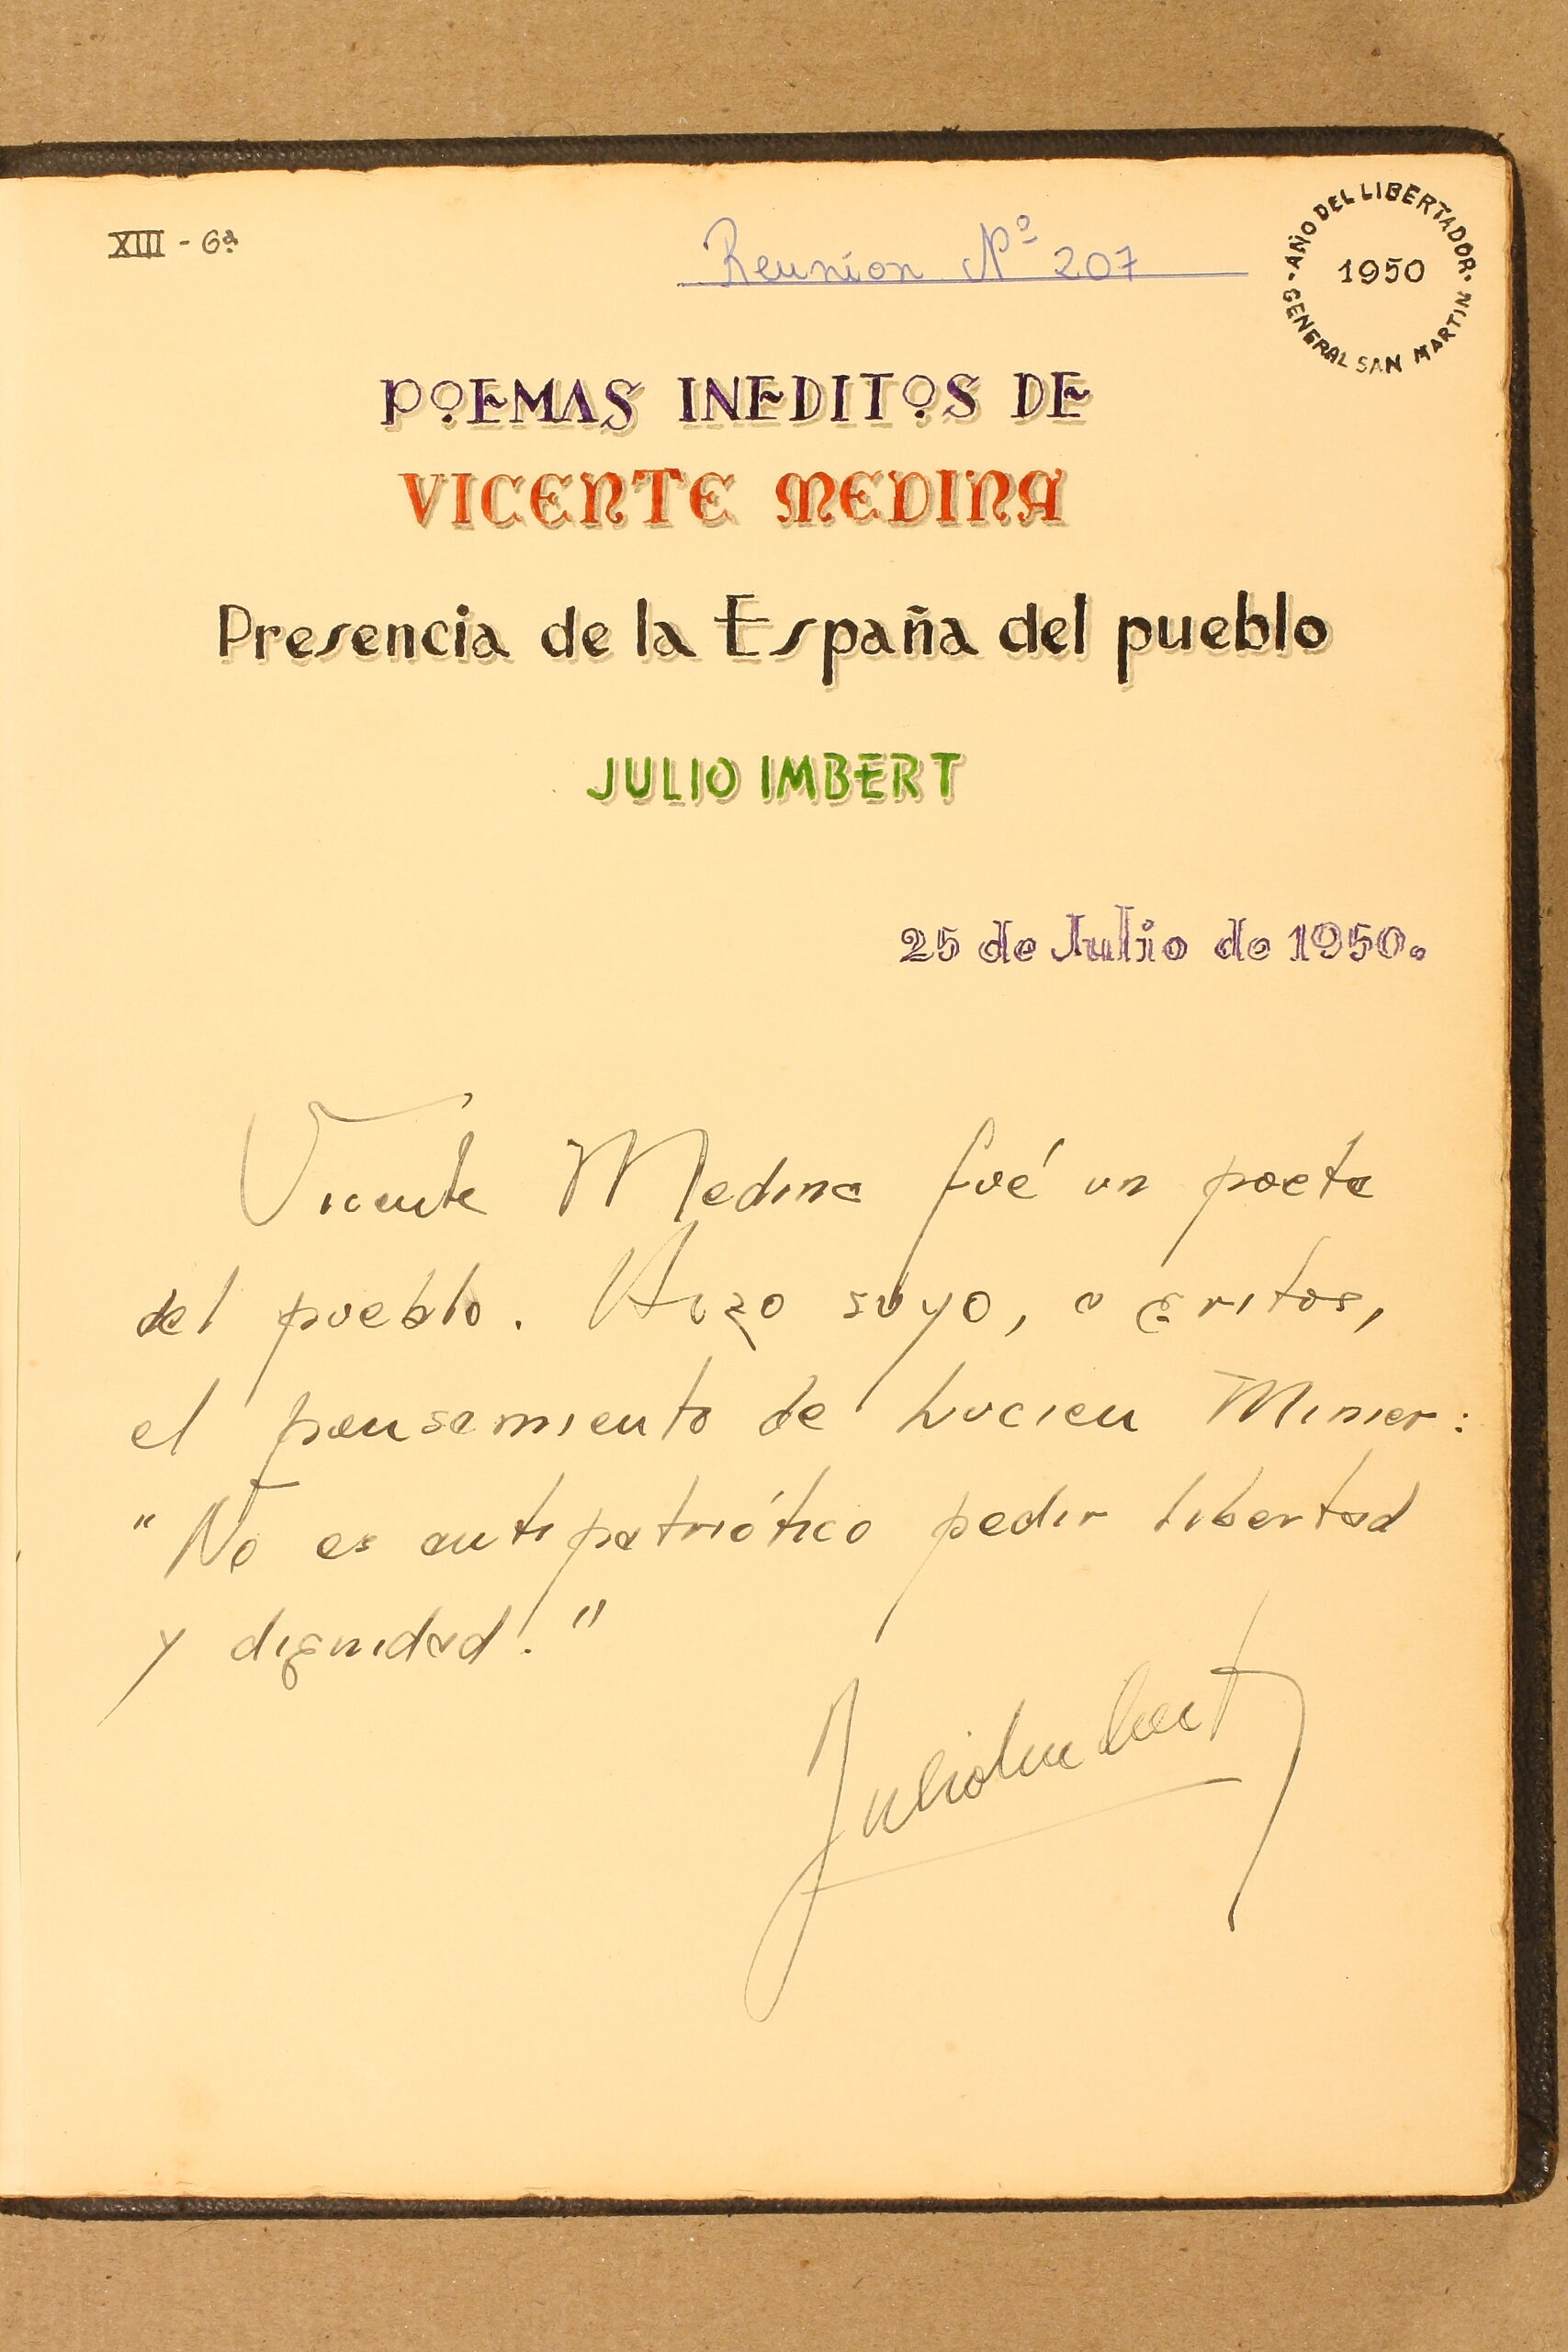 XIII - 6ª
Reunion Nº 207
AÑO DEL LIBERTADOR · GENERAL SAN MARTIN ·
1950
POEMAS INEDITOS DE
VICENTE MEDINA
Presencia de la España del pueblo
JULIO IMBERT
25 de Julio de 1950.
Vicente Medina fué un poeta
del pueblo. Hizo suyo, a gritos,
el pensamiento de Lucien Minier:
"No es antipatriótico pedir libertad
y dignidad."
Julio Imbert